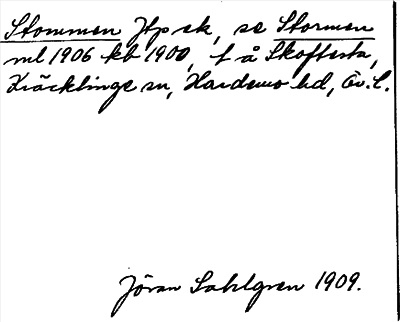 Stommen Jtp sk, se Stormen
ml 1906 kb 1900, f å Skoftesta,
Kräcklinge sn, Hardemo hd, Öv. L.
Jöran Sahlgren 1909.